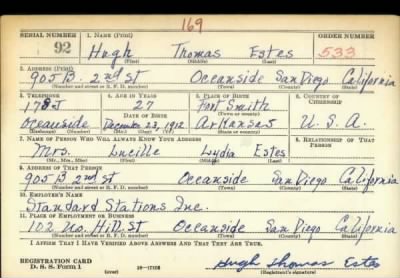 169
SERIAL NUMBER 1. NAME (Print) ORDER NUMBER
92 Hugh Thomas Estes 533
(First) (Middle) (Last)
2. ADDRESS (Print)
905 B. 2nd St Oceanside San Diego California
(Number and street or R. F. D. number) (Town) (County) (State)
3. TELEPHONE 4. AGE IN YEARS 5. PLACE OF BIRTH 6. COUNTRY OF CITIZENSHIP
178J 27 Fort Smith
DATE OF BIRTH (Town or county)
Oceanside December 23, 1912 Arkansas U. S. A.
(Exchange) (Number) (Mo.) (Day) (Yr.) (State or country)
7. NAME OF PERSON WHO WILL ALWAYS KNOW YOUR ADDRESS 8. RELATIONSHIP OF THAT PERSON
Mrs. Lucille Lydia Estes
(Mr., Mrs., Miss) (First) (Middle) (Last)
9. ADDRESS OF THAT PERSON
905 B 2nd St Oceanside San Diego California
(Number and street or R. F. D. number) (Town) (County) (State)
10. EMPLOYER'S NAME
Standard Stations Inc.
11. PLACE OF EMPLOYMENT OR BUSINESS
102 No. Hill St Oceanside San Diego California
(Number and street or R. F. D. number) (Town) (County) (State)
I AFFIRM THAT I HAVE VERIFIED ABOVE ANSWERS AND THAT THEY ARE TRUE.
REGISTRATION CARD
D. S. S. Form 1 (over) 16—17105 Hugh Thomas Estes
(Registrant's signature)